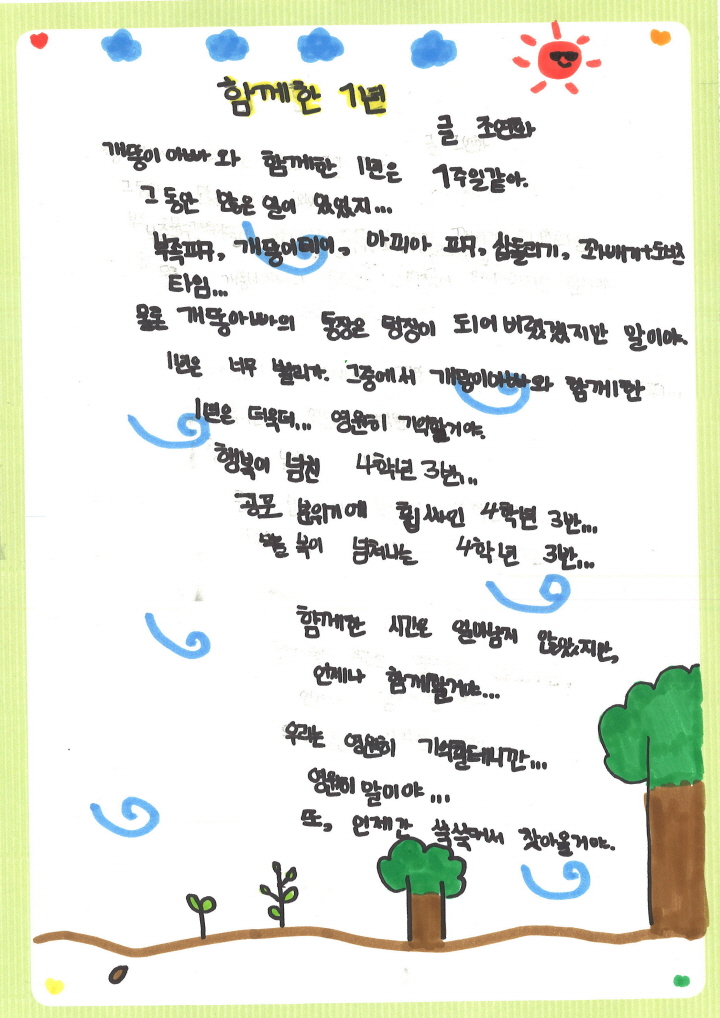 함께한 1년
글 조연화
개똥이 아빠와 함께한 1년은 1주일같아.
그동안 많은 일이 있었지...
부족피구, 개똥이데이, 마피아 피구, 삽돌리기, 꽈배기+도넛츠
타임...
물론 개똥아빠의 통장은 텅장이 되어버렸겠지만 말이야.
1년은 너무 빨리가. 그중에서 개똥이아빠와 함께한
1년은 더욱더... 영원히 기억할거야.
행복이 넘친 4학년 3반...
공포 분위기에 휩싸인 4학년 3반...
복이 넘쳐나는 4학년 3반...
함께한 시간은 얼마남지 않았지만,
언제나 함께할거야...
우리는 영원히 기억할테니깐...
영원히 말이야...
또, 언젠간 쑥쑥커서 찾아올거야.